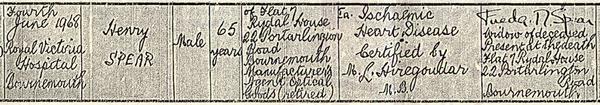 Fourth
June 1968
Royal Victoria
Hospital
Bournemouth
Henry
SPEAR
Male
65
years
of Flat 7
Rydal House
22 Portarlington
Road
Bournemouth
Manufacturers
Agent Optical
Goods (retired)
Ia. Ischaemic
Heart Disease
Certified by
M. L. Hiregoudar
M.B.
Spear
Widow of deceased
Present at the death
Flat 7 Rydal House
22 Portarlington
Road
Bournemouth